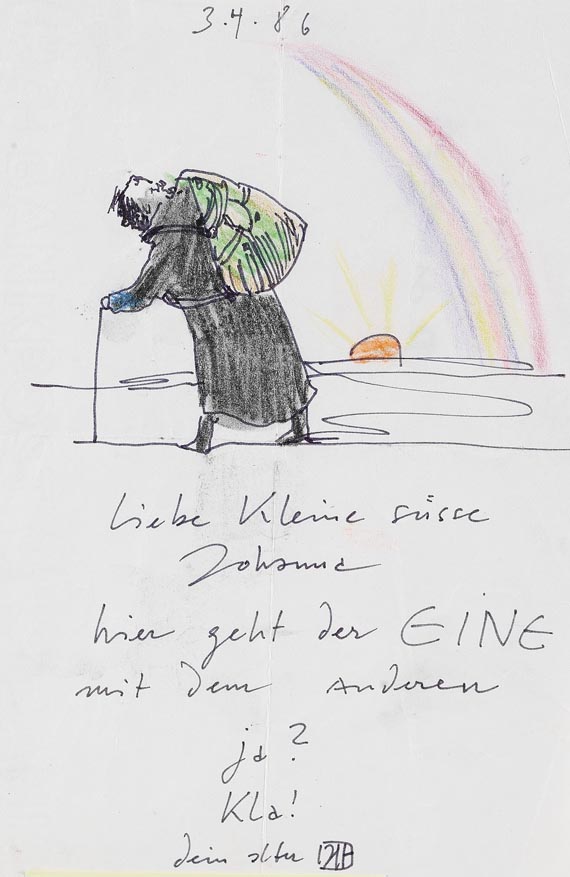 3.4.86
Liebe Kleine süsse
Johanna
hier geht der EINE
mit dem Anderen
ja?
Kla!
dein alter